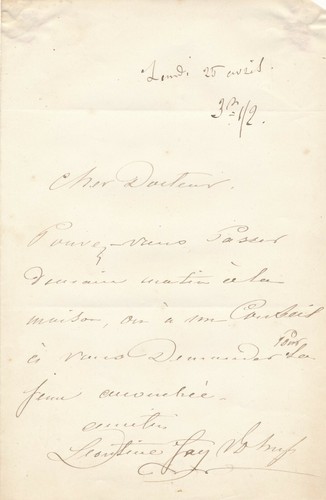 Lundi 25 avril.
3h 1/2.
Cher Docteur.
Pouvez-vous Passer
demain matin à la
maison, on a un Conseil
à vous Demander Pour la
jeune
amitiés
Léontine Fay